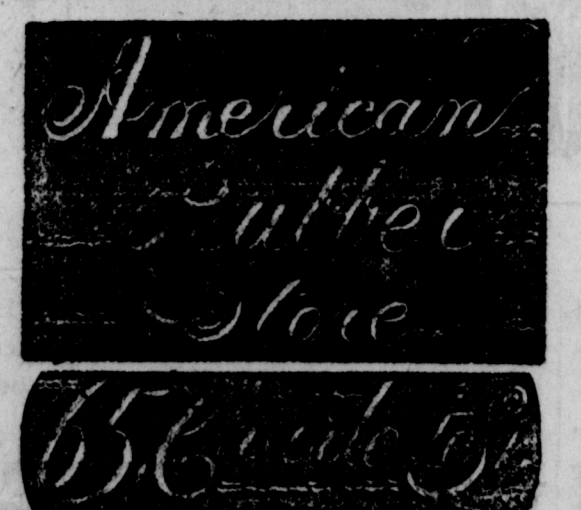 American
Rubber
Store
65 Castle St